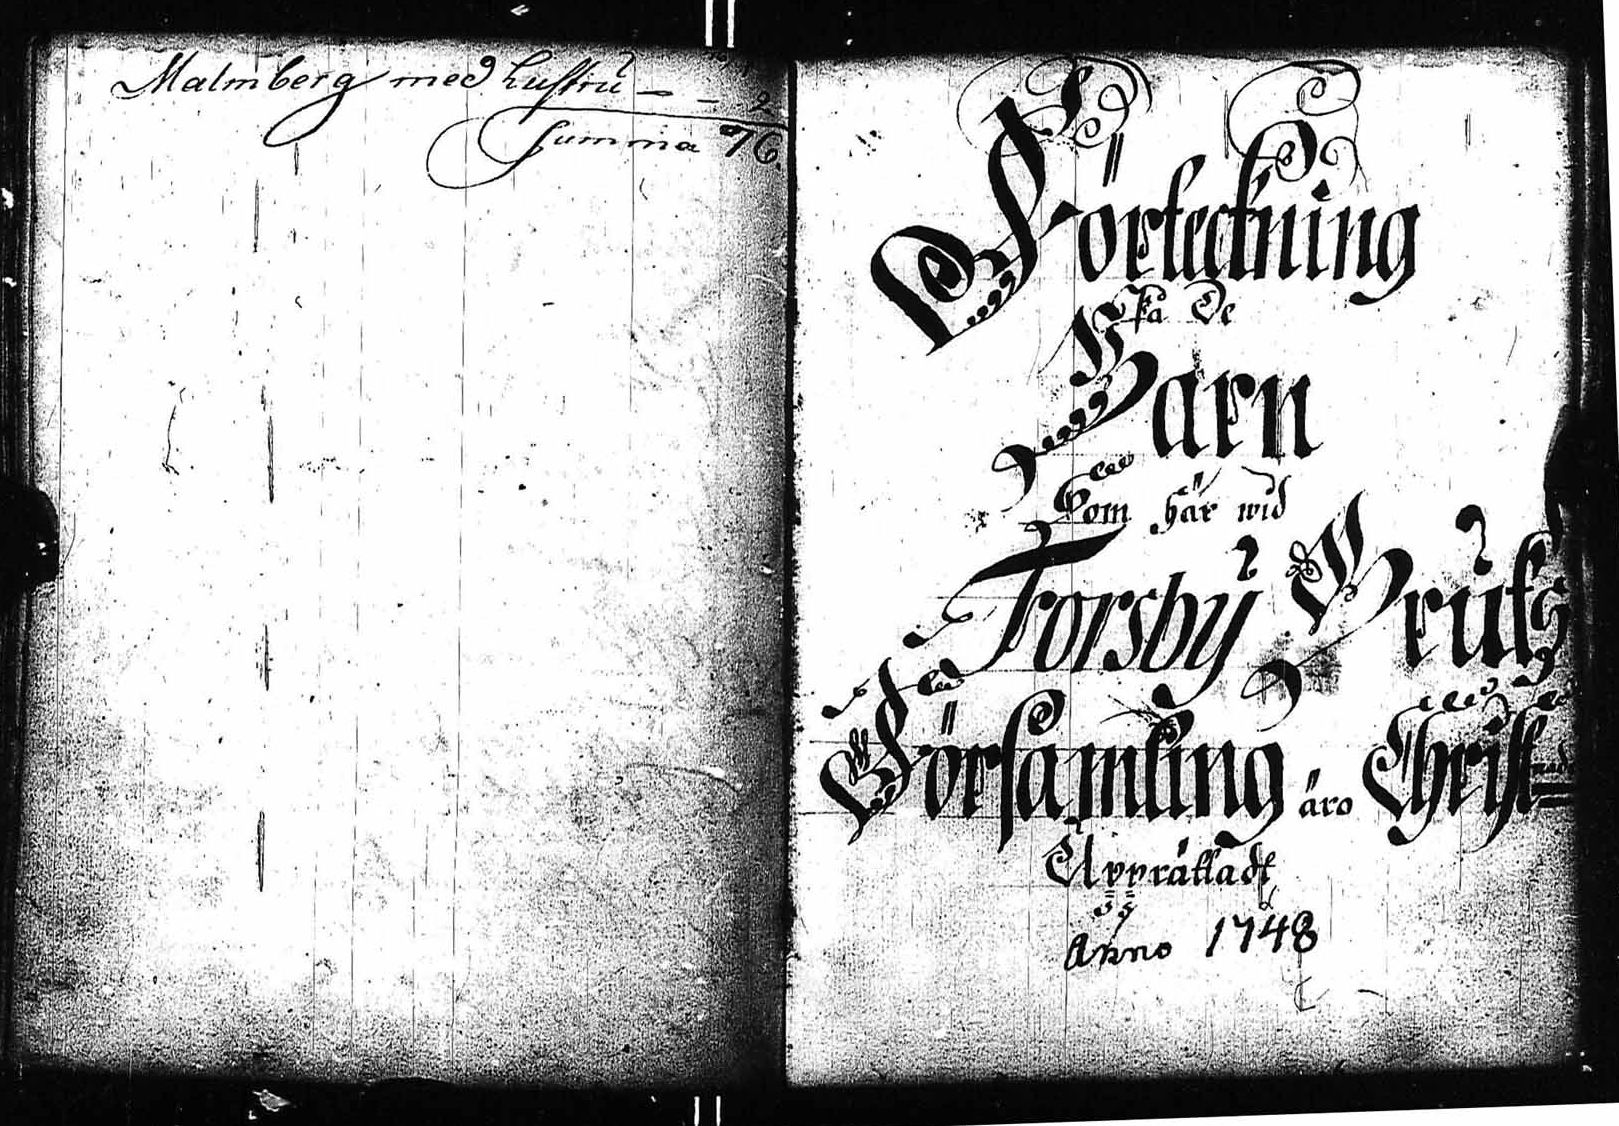 Malmberg med hustru - - 2
Summa 76.
Förteckning
På De
Barn
Som här wid
Forsby Bruks
Församling äro Christ=
Upprättadt
Anno 1748